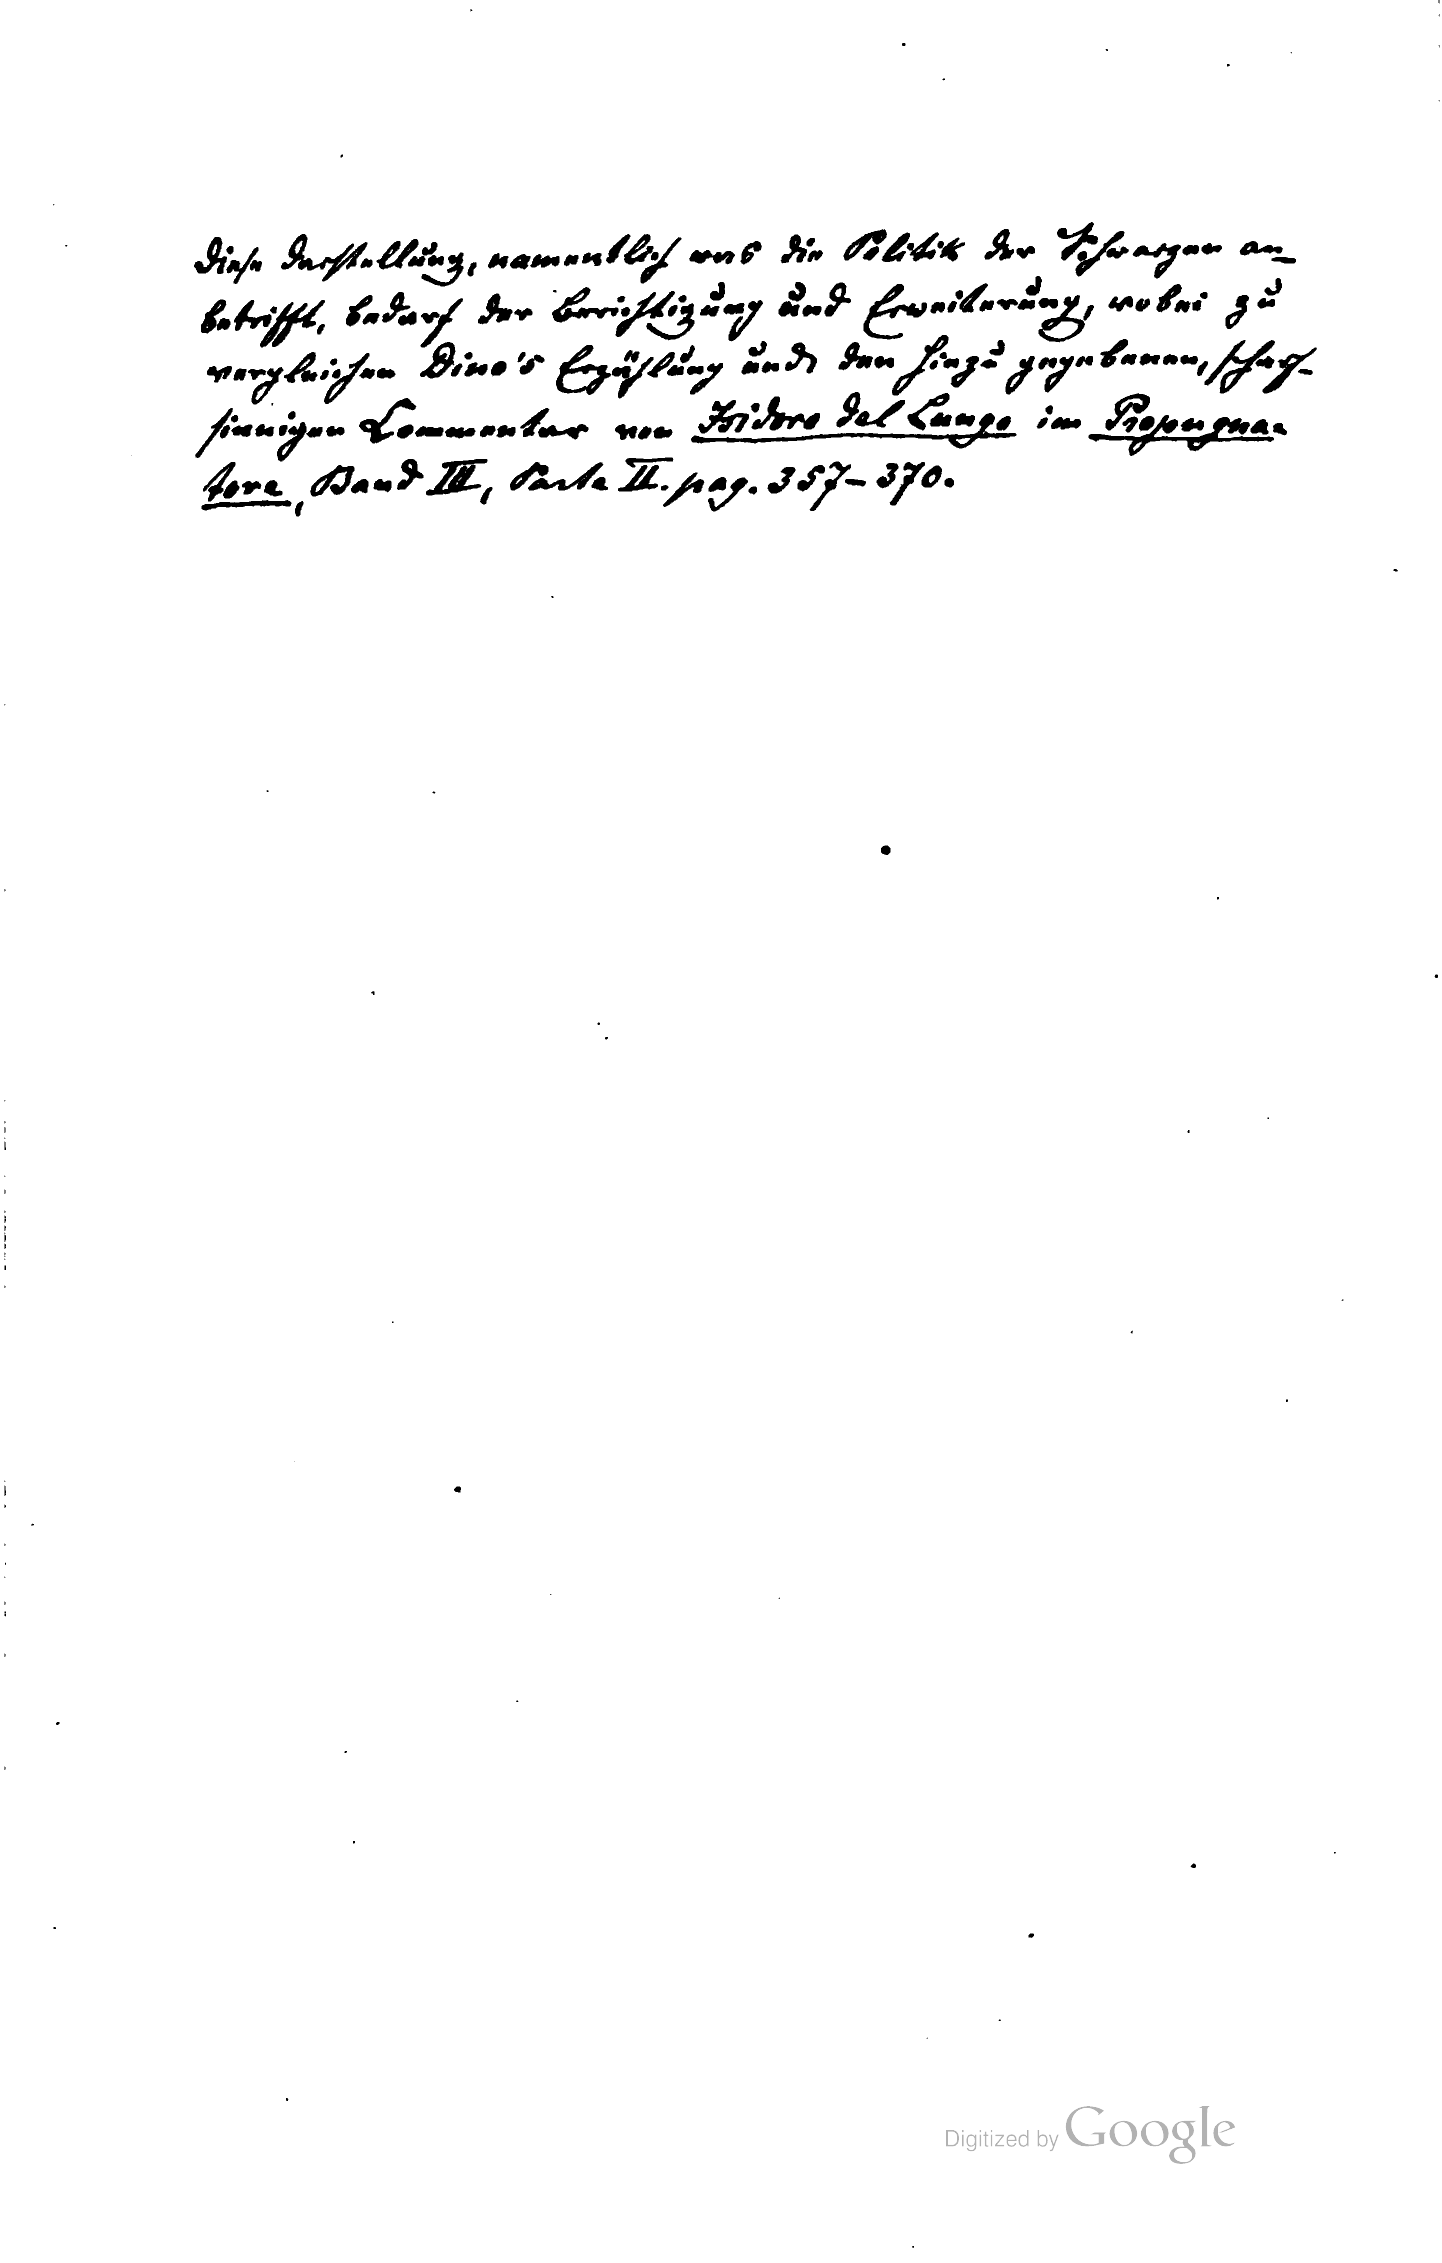 Diese Darstellung, namentlich was die Politik der Schwarzen an-
betrifft, bedarf der Berichtigung und Erweiterung, wobei zu
vergleichen Dino's Erzählung und den hinzu gegebenen, scharf-
sinnigen Commentar von Isidoro del Lungo im Propugna-
tore, Band III, Parte II. pag. 357-370.
Digitized by Google